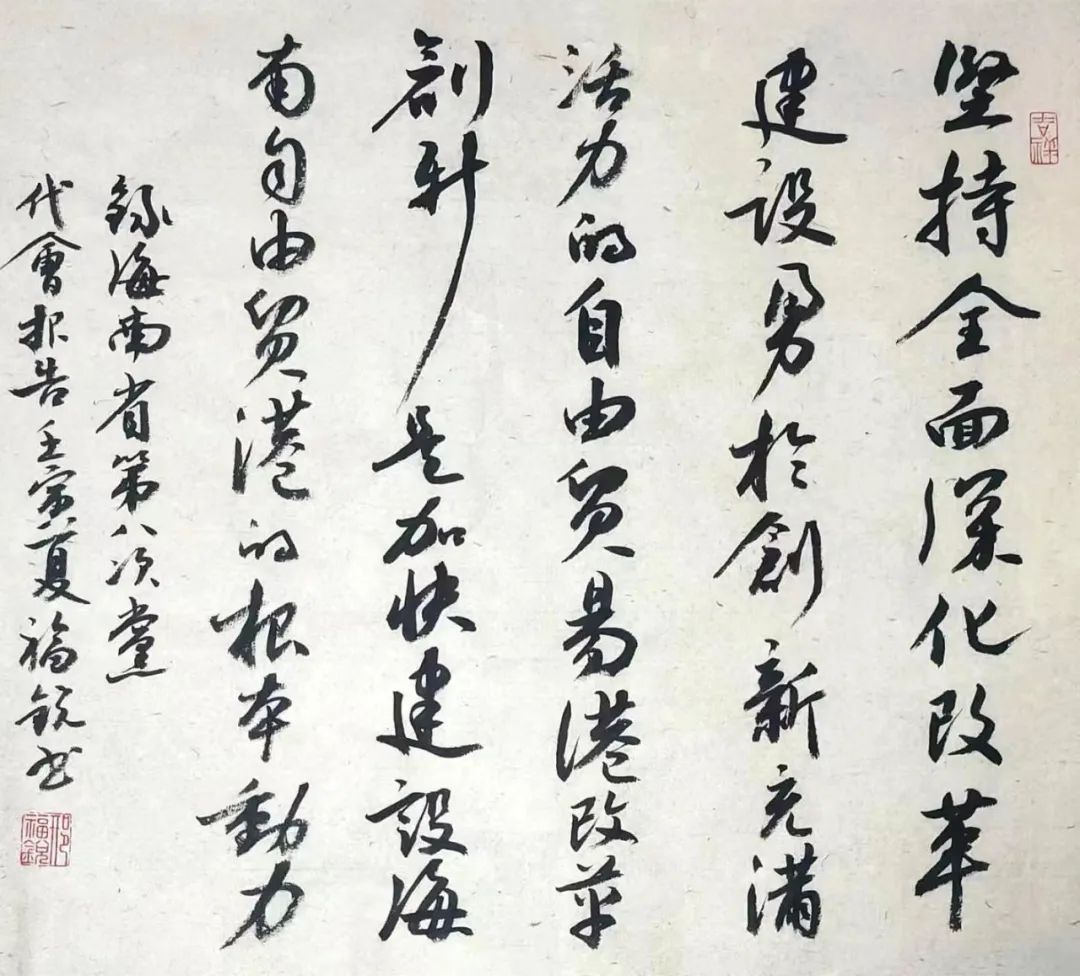 吉祥
堅持全面深化改革
建設勇於創新充滿
活力的自由貿易港改革
創新是加快建設海
南自由貿港的根本動力
錄海南省第八次黨
代會報告壬寅夏福銳书
邢福銳